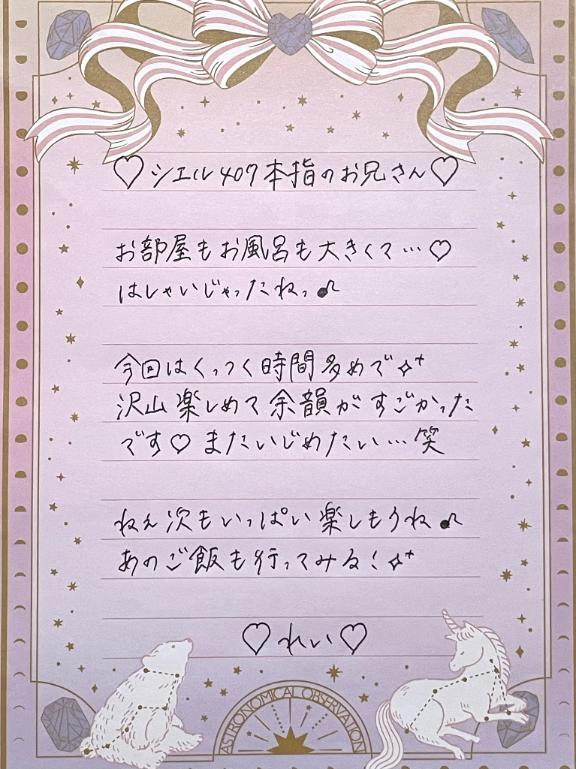 ♡シエル407本指のお兄さん♡
お部屋もお風呂も大きくて…♡
はしゃいじゃったねっ♪
今回はくっつく時間多めで✧⁺
沢山楽しめて余韻がすごかった
です♡またいじめたい…笑
ねえ次もいっぱい楽しもうね♪
あのご飯も行ってみる！✧⁺
♡れい♡
ASTRONOMICAL OBSERVATION